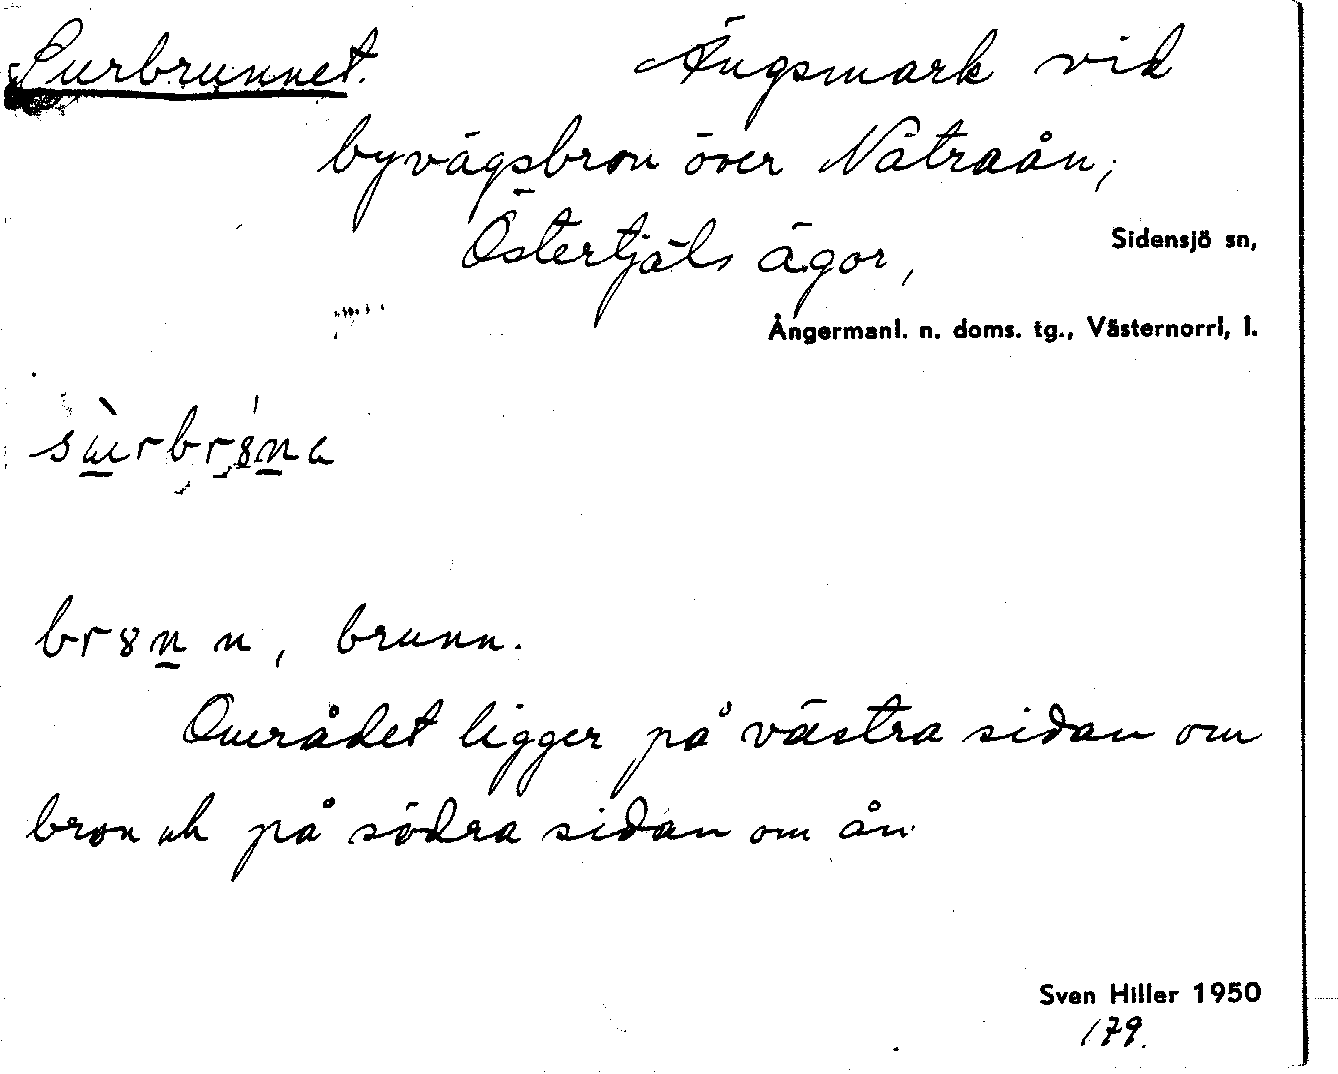 Surbrunnet. Ängsmark vid
byvägsbron över Nätraån,
Östertjäls ägor, Sidensjö sn,
Ångermanl. n. doms. tg., Västernorrl, l.
sùrbr8́na
br8n n, brunn.
Området ligger på västra sidan om
bron och på södra sidan om ån
Sven Hiller 1950
179.